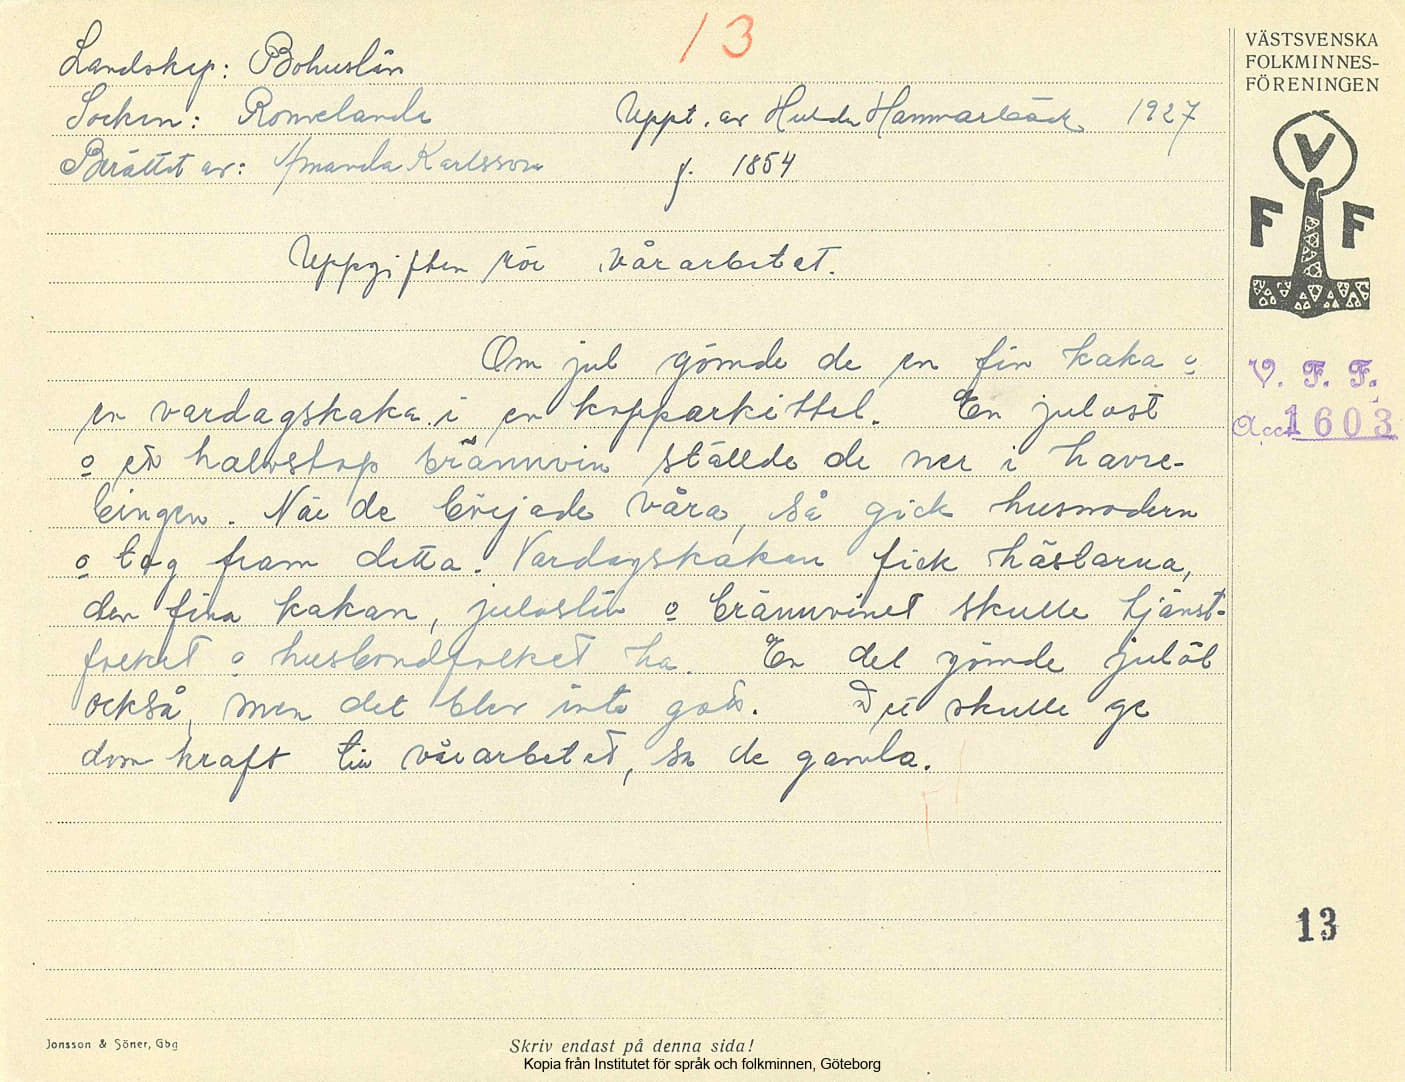 13
Landskap: Bohuslän
Socken: Romelanda Uppt. av Hulda Hammarbäck 1927
Berättat av: Amanda Karlsson f. 1854
Uppgiften rör vårarbetet.
Om jul gömde de en fin kaka o
en vardagskaka i en kopparkittel. En julost
o ett halvstop brännvin ställde de ner i havre-
bingen. När de började våra, så gick husmodern
o tog fram detta. Vardagskakan fick hästarna,
den fina kakan, julosten o brännvinet skulle tjänst-
folket o husbondfolket ha. En del gömde julöl
också, men det blev inte gott. Det skulle ge
dom kraft till vårarbetet, sa de gamla.
VÄSTSVENSKA
FOLKMINNES-
FÖRENINGEN
V
F F
V. F. F.
Acc 1603
13
Jonsson & Söner, Gbg
Skriv endast på denna sida!
Kopia från Institutet för språk och folkminnen, Göteborg